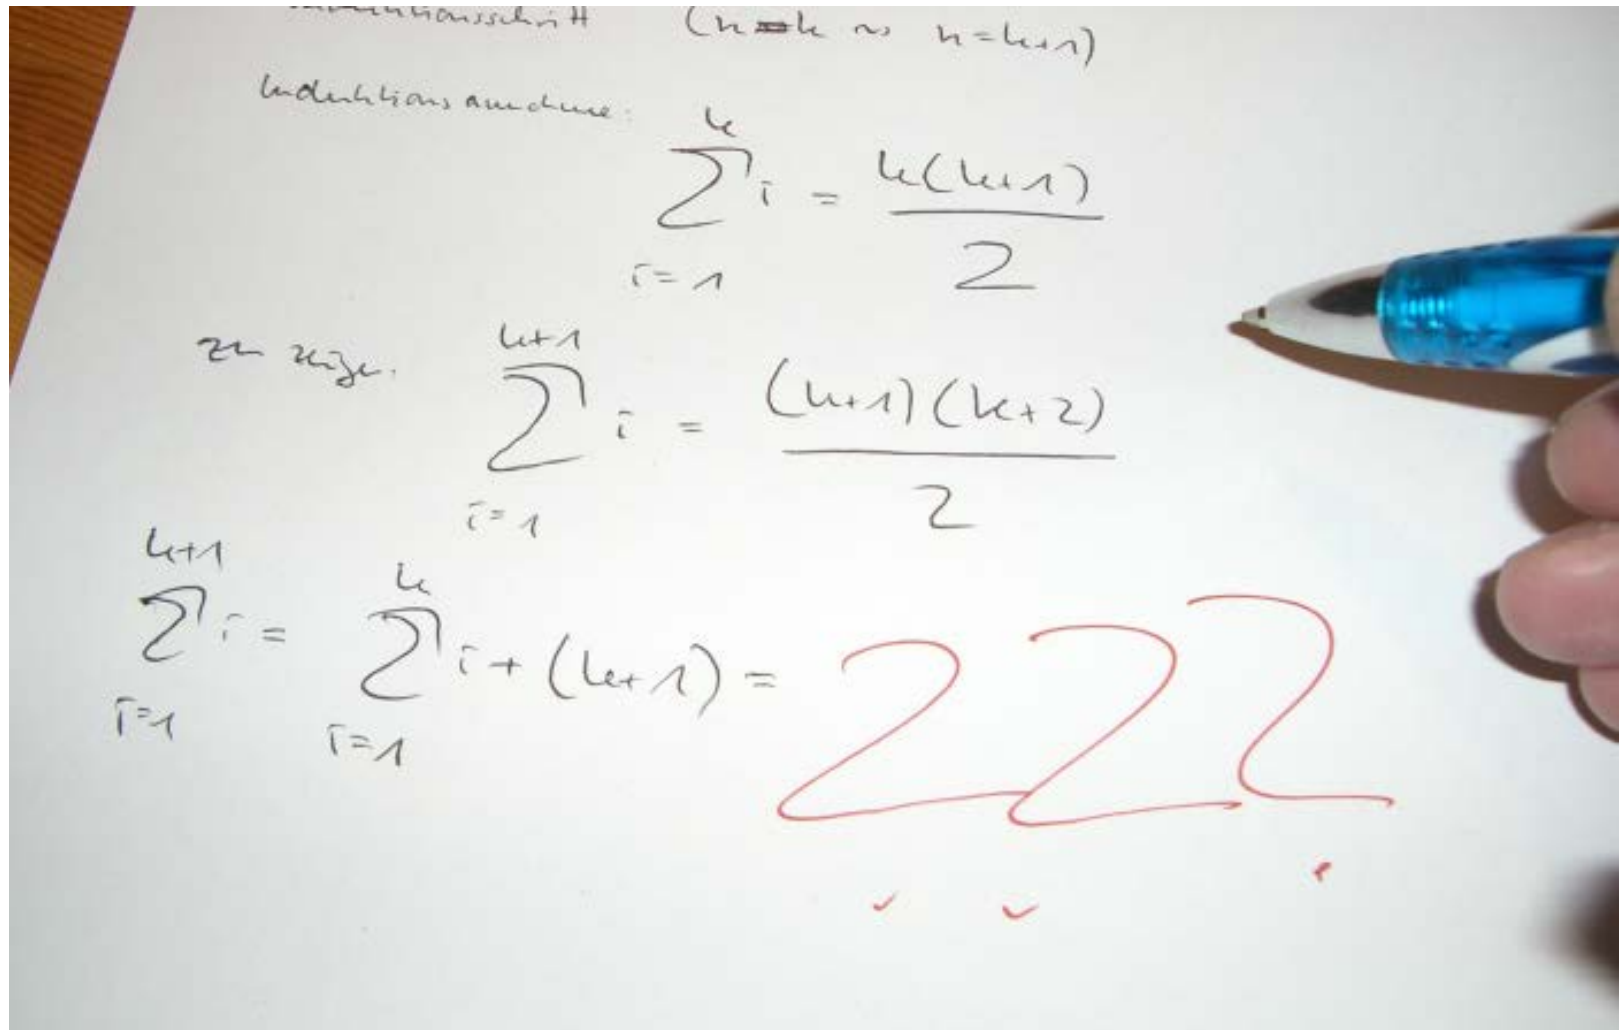 Induktionsschritt (n=k ⇝ n=k+1)
Induktionsannahme: ∑_{i=1}^{k} i = k(k+1)/2
zu zeigen: ∑_{i=1}^{k+1} i = (k+1)(k+2)/2
∑_{i=1}^{k+1} i = ∑_{i=1}^{k} i + (k+1) = ???